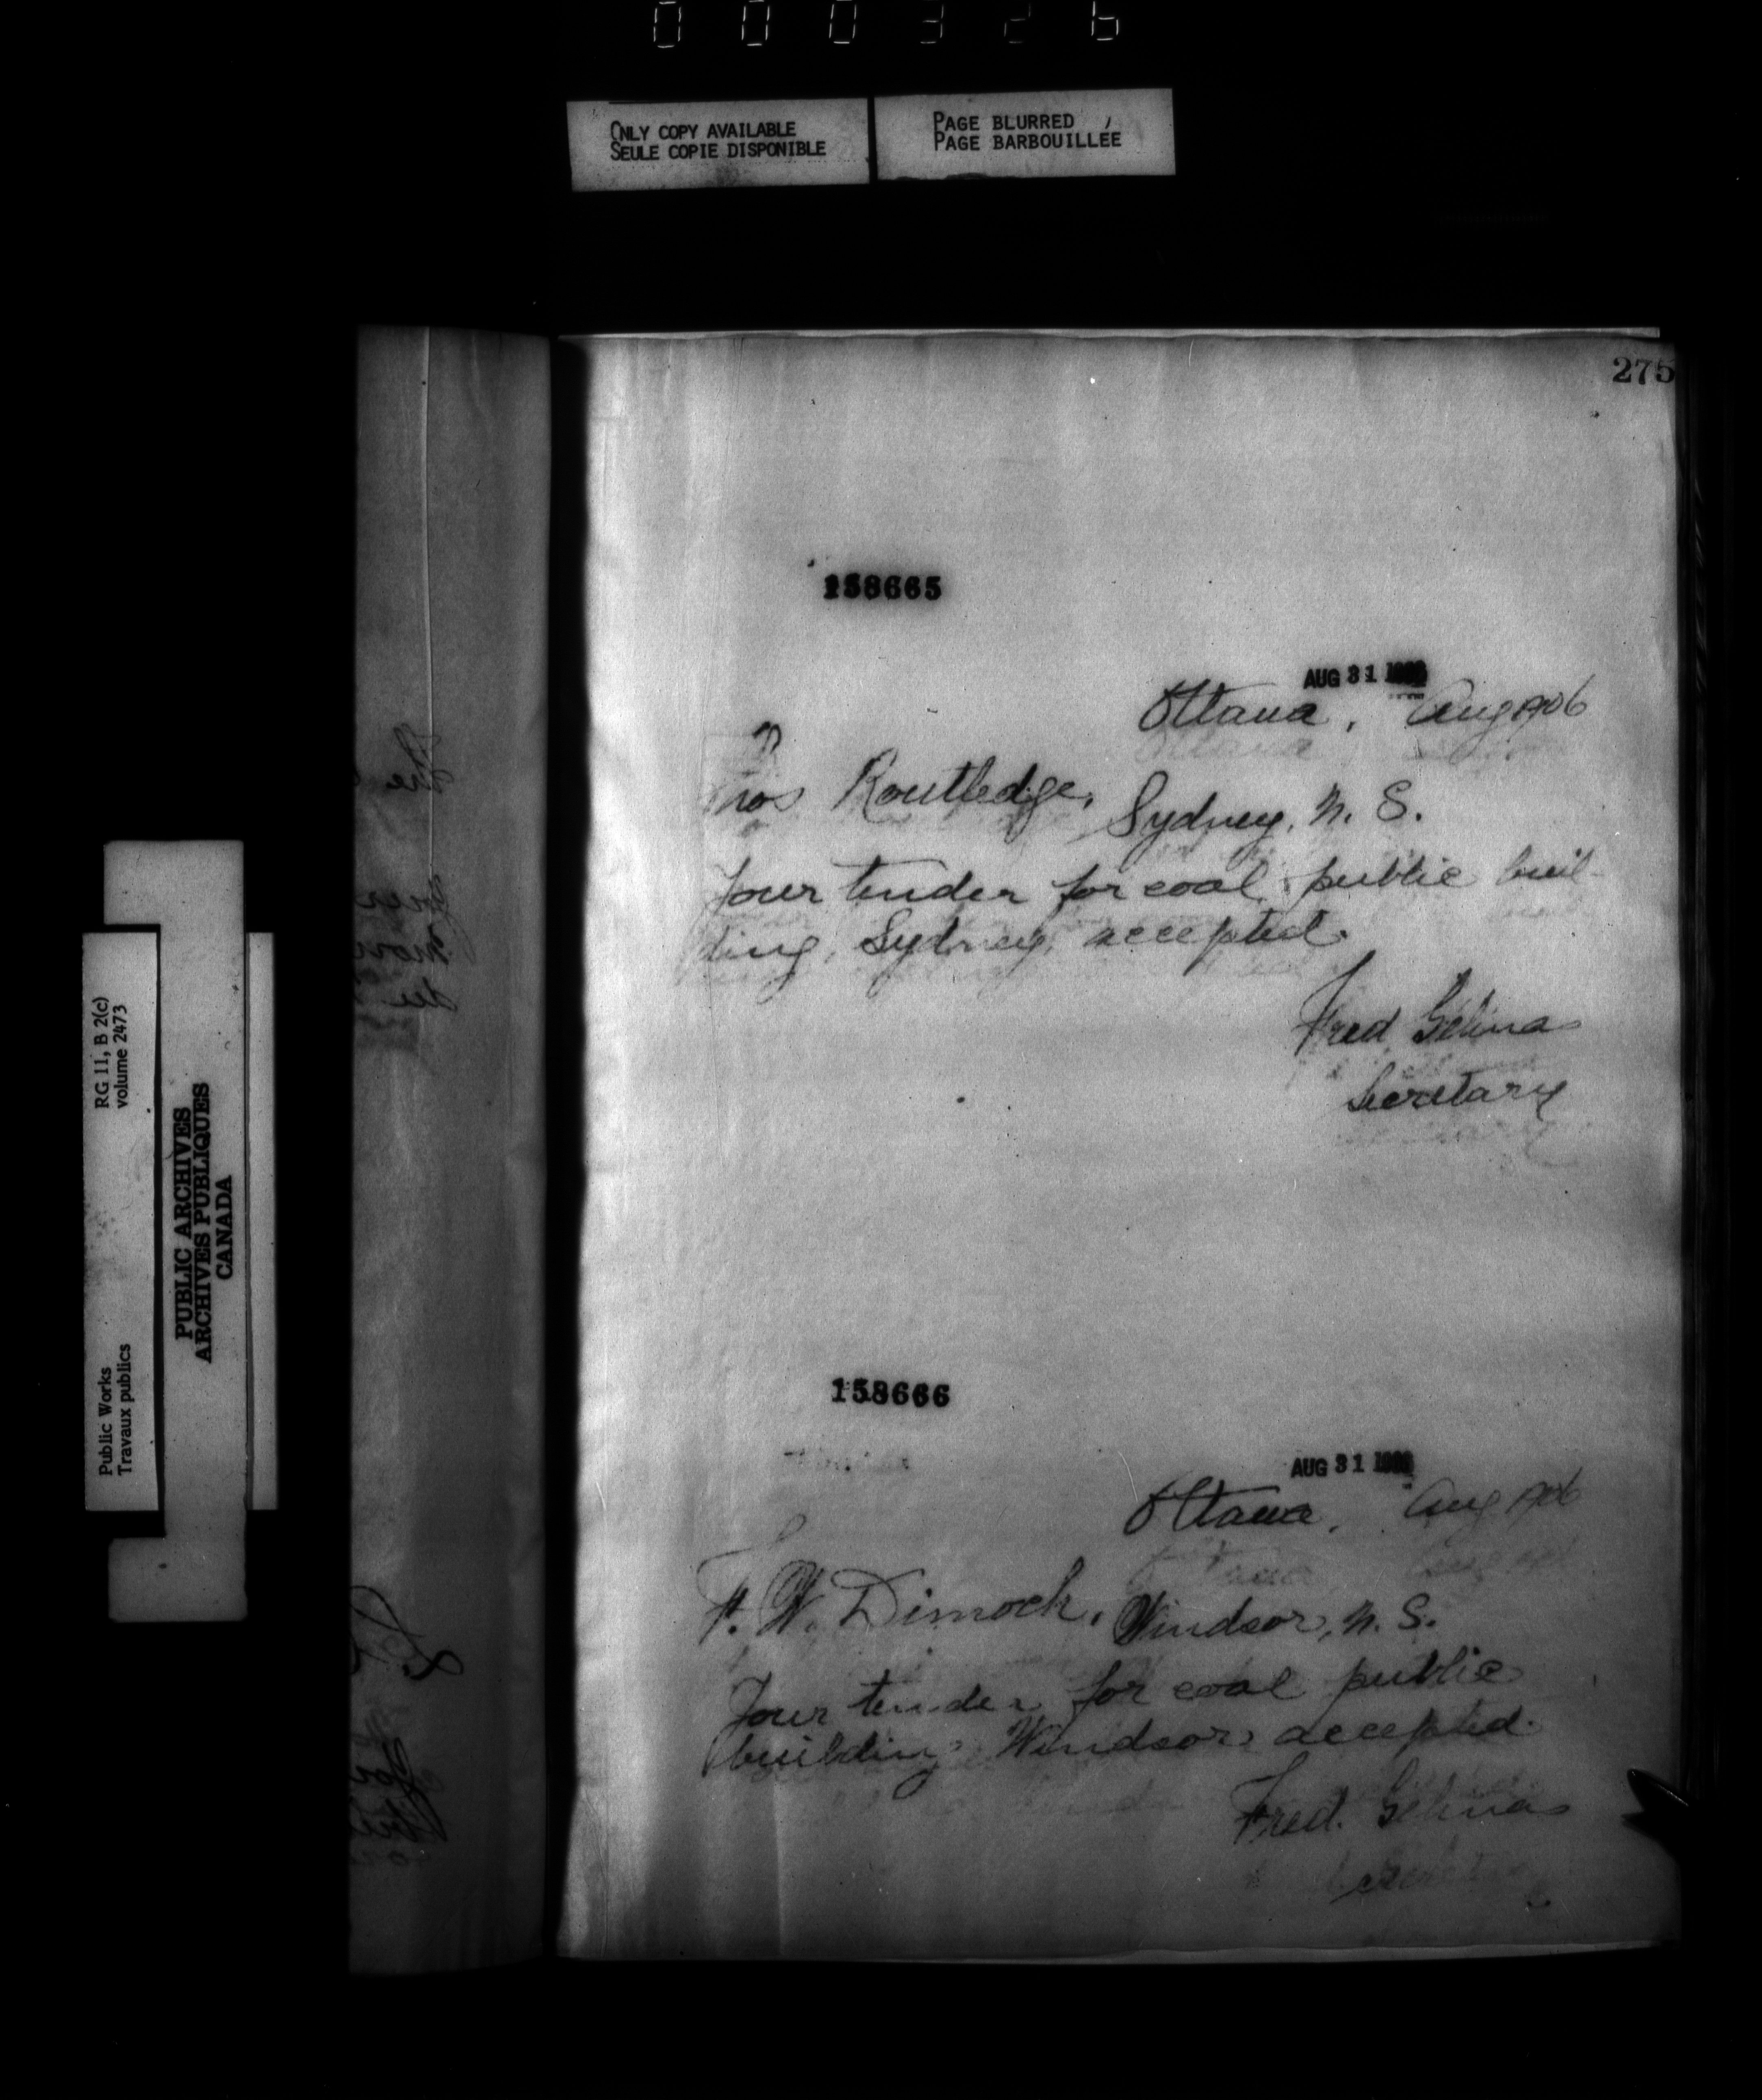 000326
ONLY COPY AVAILABLE
SEULE COPIE DISPONIBLE
PAGE BLURRED
PAGE BARBOUILLÉE
RG 11, B 2(c)
volume 2473
Public Works
Travaux publics
PUBLIC ARCHIVES
ARCHIVES PUBLIQUES
CANADA
275
158665
AUG 31 1906
Ottawa, Aug 1906
Thos Routledge,
Sydney, N. S.
Your tender for coal, public buil-
ding, Sydney, accepted.
Fred Gélinas
Secretary
158666
AUG 31 1906
Ottawa, Aug 1906
F. W. Dimock, Windsor, N. S.
Your tender for coal public
building Windsor accepted.
Fred. Gélinas
Secretary